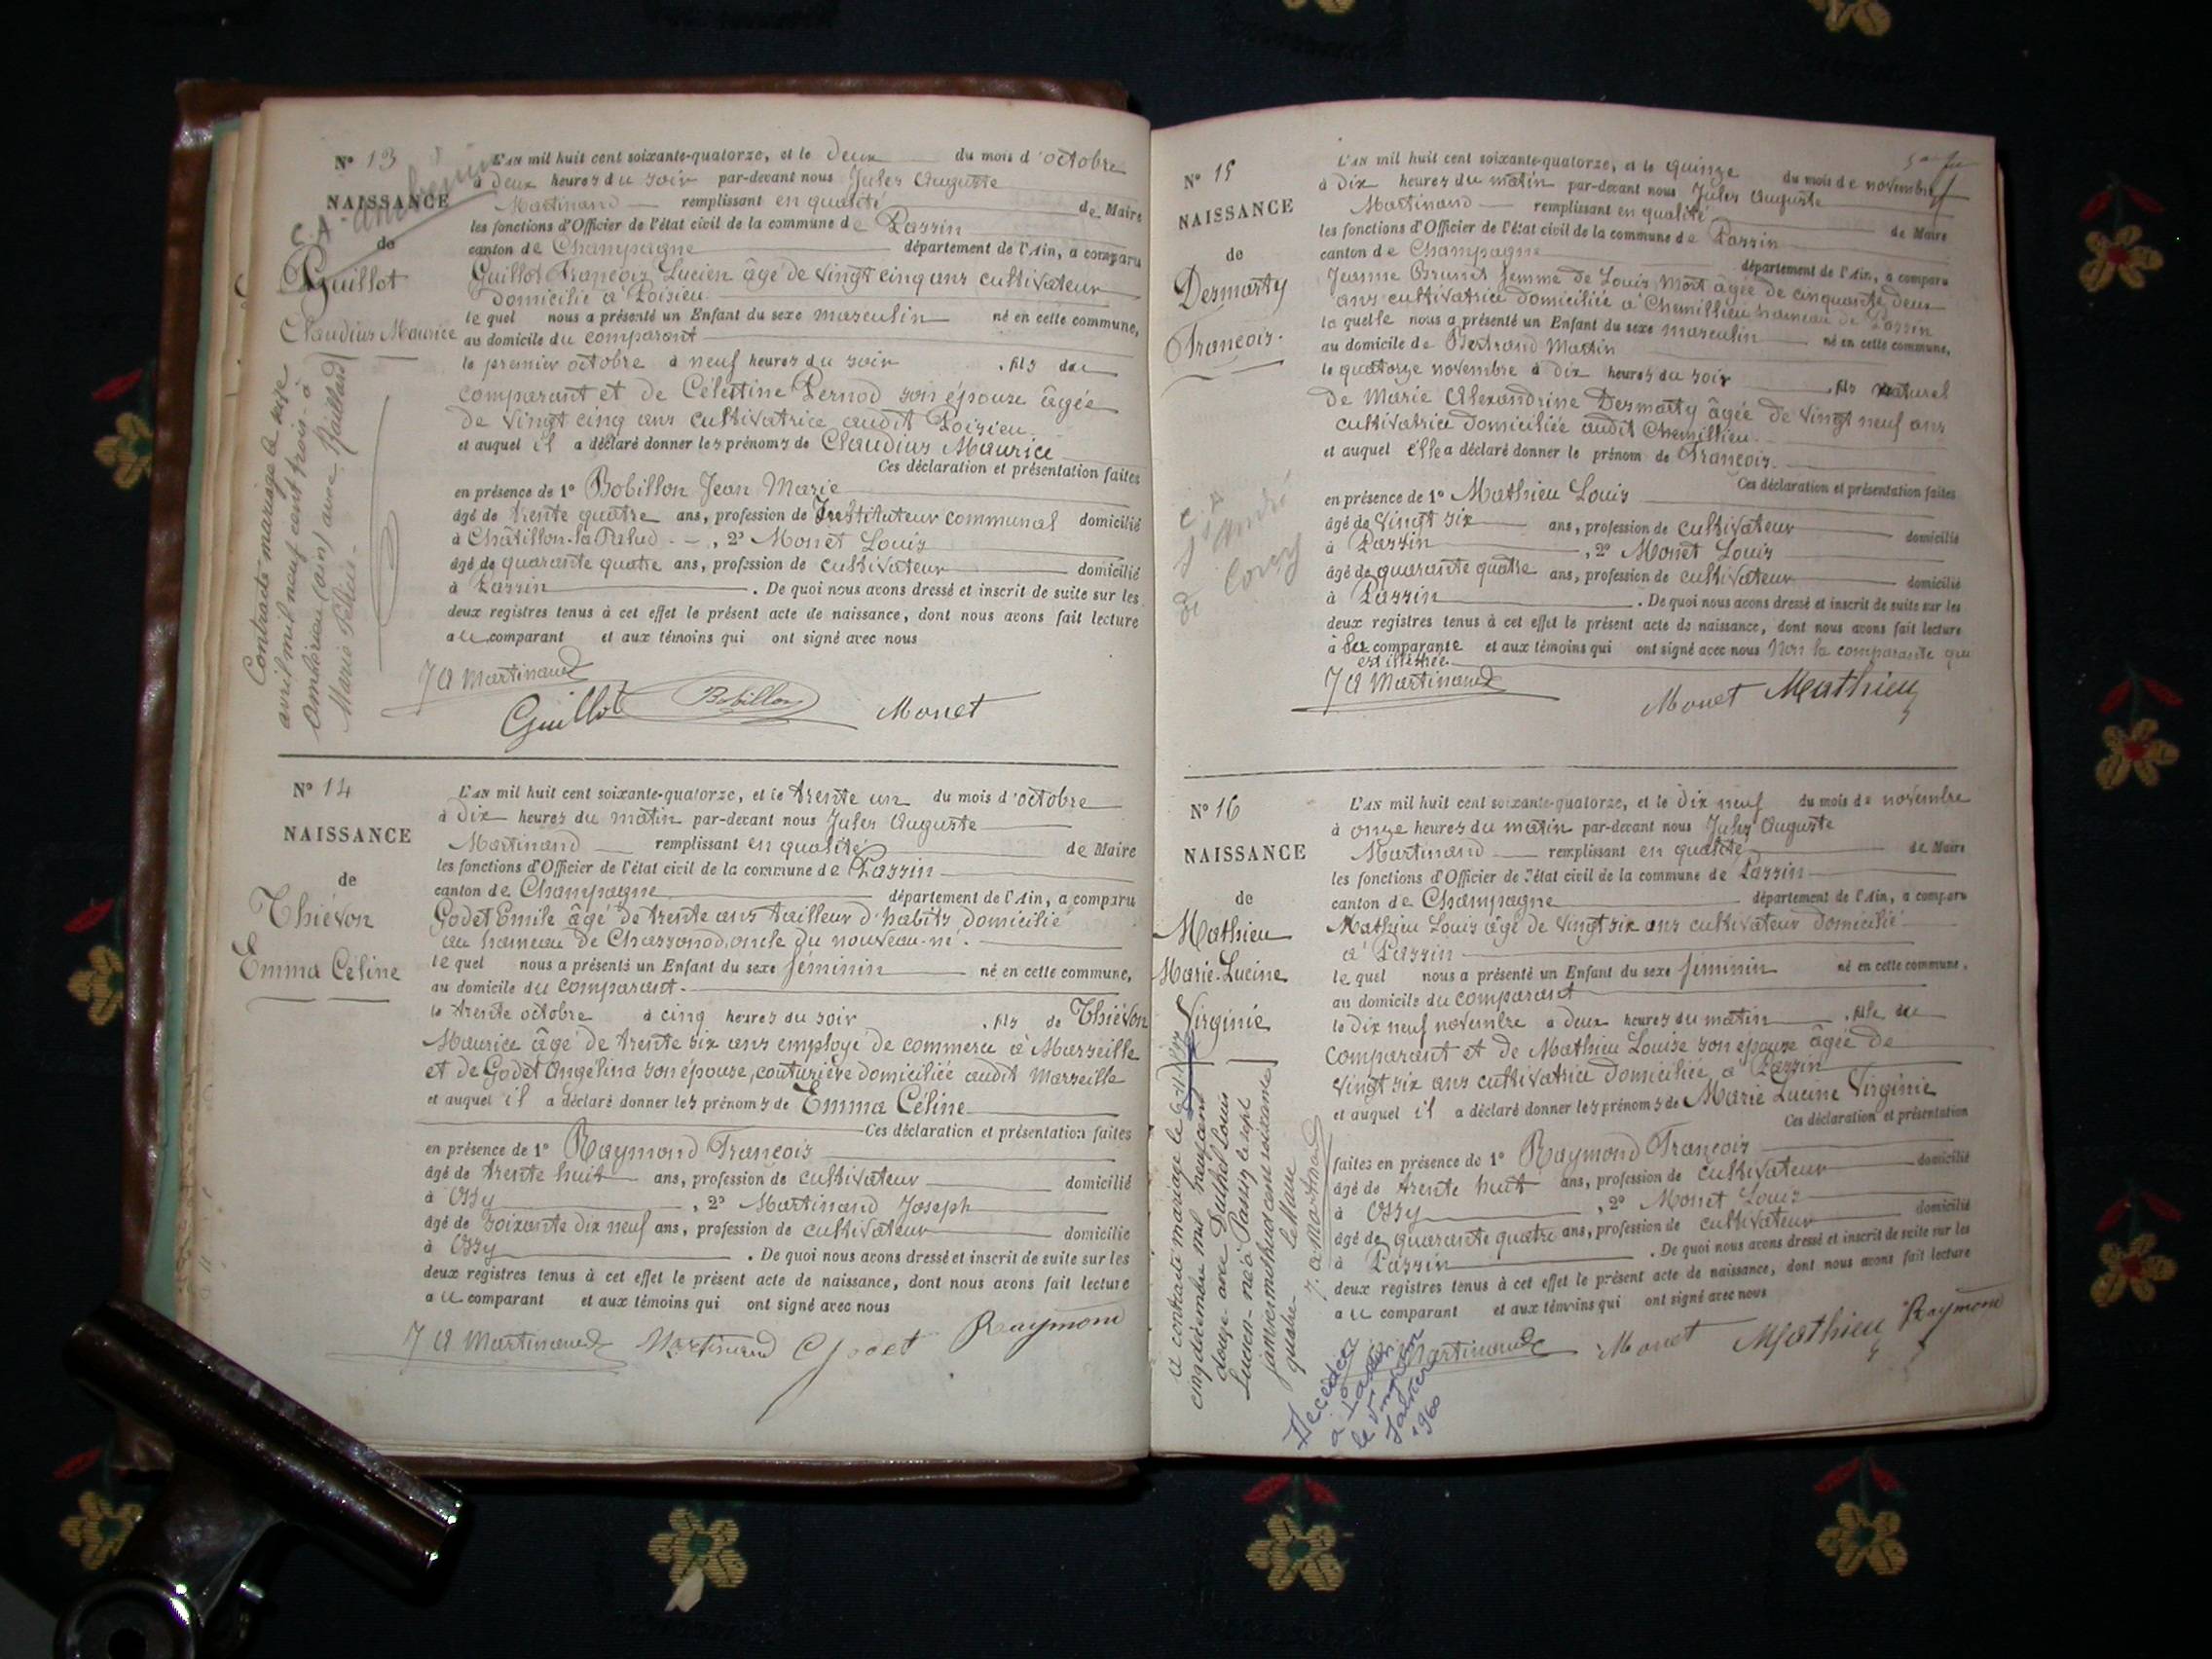 N° 13
NAISSANCE
de
Guillot
Claudius Maurice
L'AN mil huit cent soixante-quatorze, et le deux du mois d'octobre
à deux heures du soir par-devant nous Jules Auguste
Martinand remplissant en qualité de Maire
les fonctions d'Officier de l'état civil de la commune de Passin
canton de Champagne département de l'Ain, a comparu
Guillot François Lucien âgé de vingt cinq ans cultivateur
domicilié à Poisieu
le quel nous a présenté un Enfant du sexe masculin né en cette commune,
au domicile du comparant
le premier octobre à neuf heures du soir , fils du
comparant et de Célestine Pernod son épouse âgée
de vingt cinq ans cultivatrice audit Poisieu
et auquel il a déclaré donner les prénoms de Claudius Maurice
Ces déclaration et présentation faites
en présence de 1° Bobillon Jean Marie
âgé de trente quatre ans, profession de Instituteur communal domicilié
à Châtillon-la-Palud , 2° Monet Louis
âgé de quarante quatre ans, profession de cultivateur domicilié
à Passin . De quoi nous avons dressé et inscrit de suite sur les
deux registres tenus à cet effet le présent acte de naissance, dont nous avons fait lecture
au comparant et aux témoins qui ont signé avec nous
J A Martinand
Guillot Bobillon Monet
Contracté mariage le seize
avril mil neuf cent trois à
Ambérieu (ain) avec
Marie
N° 14
NAISSANCE
de
Thiévon
Emma Céline
L'AN mil huit cent soixante-quatorze, et le trente un du mois d'octobre
à dix heures du matin par-devant nous Jules Auguste
Martinand remplissant en qualité de Maire
les fonctions d'Officier de l'état civil de la commune de Passin
canton de Champagne département de l'Ain, a comparu
Godet Emile âgé de trente ans tailleur d'habits domicilié
au hameau de Chassonod, oncle du nouveau-né.
le quel nous a présenté un Enfant du sexe féminin né en cette commune,
au domicile du comparant.
le trente octobre à cinq heures du soir , fils de Thiévon
Maurice âgé de trente six ans employé de commerce à Marseille
et de Godet Angélina son épouse, couturière domiciliée audit Marseille
et auquel il a déclaré donner les prénoms de Emma Céline
Ces déclaration et présentation faites
en présence de 1° Raymond François
âgé de trente huit ans, profession de cultivateur domicilié
à Ossy , 2° Martinand Joseph
âgé de soixante dix neuf ans, profession de cultivateur domicilié
à Ossy . De quoi nous avons dressé et inscrit de suite sur les
deux registres tenus à cet effet le présent acte de naissance, dont nous avons fait lecture
au comparant et aux témoins qui ont signé avec nous
J A Martinand Martinand Godet Raymond
N° 15
NAISSANCE
de
Desmarty
François.
L'AN mil huit cent soixante-quatorze, et le quinze du mois de novembre
à dix heures du matin par-devant nous Jules Auguste
Martinand remplissant en qualité de Maire
les fonctions d'Officier de l'état civil de la commune de Passin
canton de Champagne département de l'Ain, a comparu
Jeanne Brunet femme de Louis Mort âgée de cinquante deux
ans cultivatrice domiciliée à Chemillieu hameau de Passin
la quelle nous a présenté un Enfant du sexe masculin né en cette commune,
au domicile de Bertrand Martin
le quatorze novembre à dix heures du soir , fils naturel
de Marie Alexandrine Desmarty âgée de vingt neuf ans
cultivatrice domiciliée audit Chemillieu
et auquel elle a déclaré donner le prénom de François.
Ces déclaration et présentation faites
en présence de 1° Mathieu Louis
âgé de vingt six ans, profession de cultivateur domicilié
à Passin , 2° Monet Louis
âgé de quarante quatre ans, profession de cultivateur domicilié
à Passin . De quoi nous avons dressé et inscrit de suite sur les
deux registres tenus à cet effet le présent acte de naissance, dont nous avons fait lecture
à la comparante et aux témoins qui ont signé avec nous Non la comparante qui
est illettrée.
J A Martinand Monet Mathieu
N° 16
NAISSANCE
de
Mathieu
Marie-Lucine
Virginie
L'AN mil huit cent soixante-quatorze, et le dix neuf du mois de novembre
à onze heures du matin par-devant nous Jules Auguste
Martinand remplissant en qualité de Maire
les fonctions d'Officier de l'état civil de la commune de Passin
canton de Champagne département de l'Ain, a comparu
Mathieu Louis âgé de vingt six ans cultivateur domicilié
à Passin
le quel nous a présenté un Enfant du sexe féminin né en cette commune,
au domicile du comparant
le dix neuf novembre à deux heures du matin , fille du
comparant et de Mathieu Louise son épouse âgée de
vingt six ans cultivatrice domiciliée à Passin
et auquel il a déclaré donner les prénoms de Marie Lucine Virginie
Ces déclaration et présentation
faites en présence de 1° Raymond François
âgé de trente huit ans, profession de cultivateur domicilié
à Ossy , 2° Monet Louis
âgé de quarante quatre ans, profession de cultivateur domicilié
à Passin . De quoi nous avons dressé et inscrit de suite sur les
deux registres tenus à cet effet le présent acte de naissance, dont nous avons fait lecture
au comparant et aux témoins qui ont signé avec nous
Martinand Monet Mathieu Raymond
a contracté mariage le
cinq décembre mil neuf cent
douze avec Louis
Lucien né à Passy le sept
janvier mil huit cent soixante
quatre Le Maire
J. A Martinand
Décédée
à
le vingt
Janvier
1960